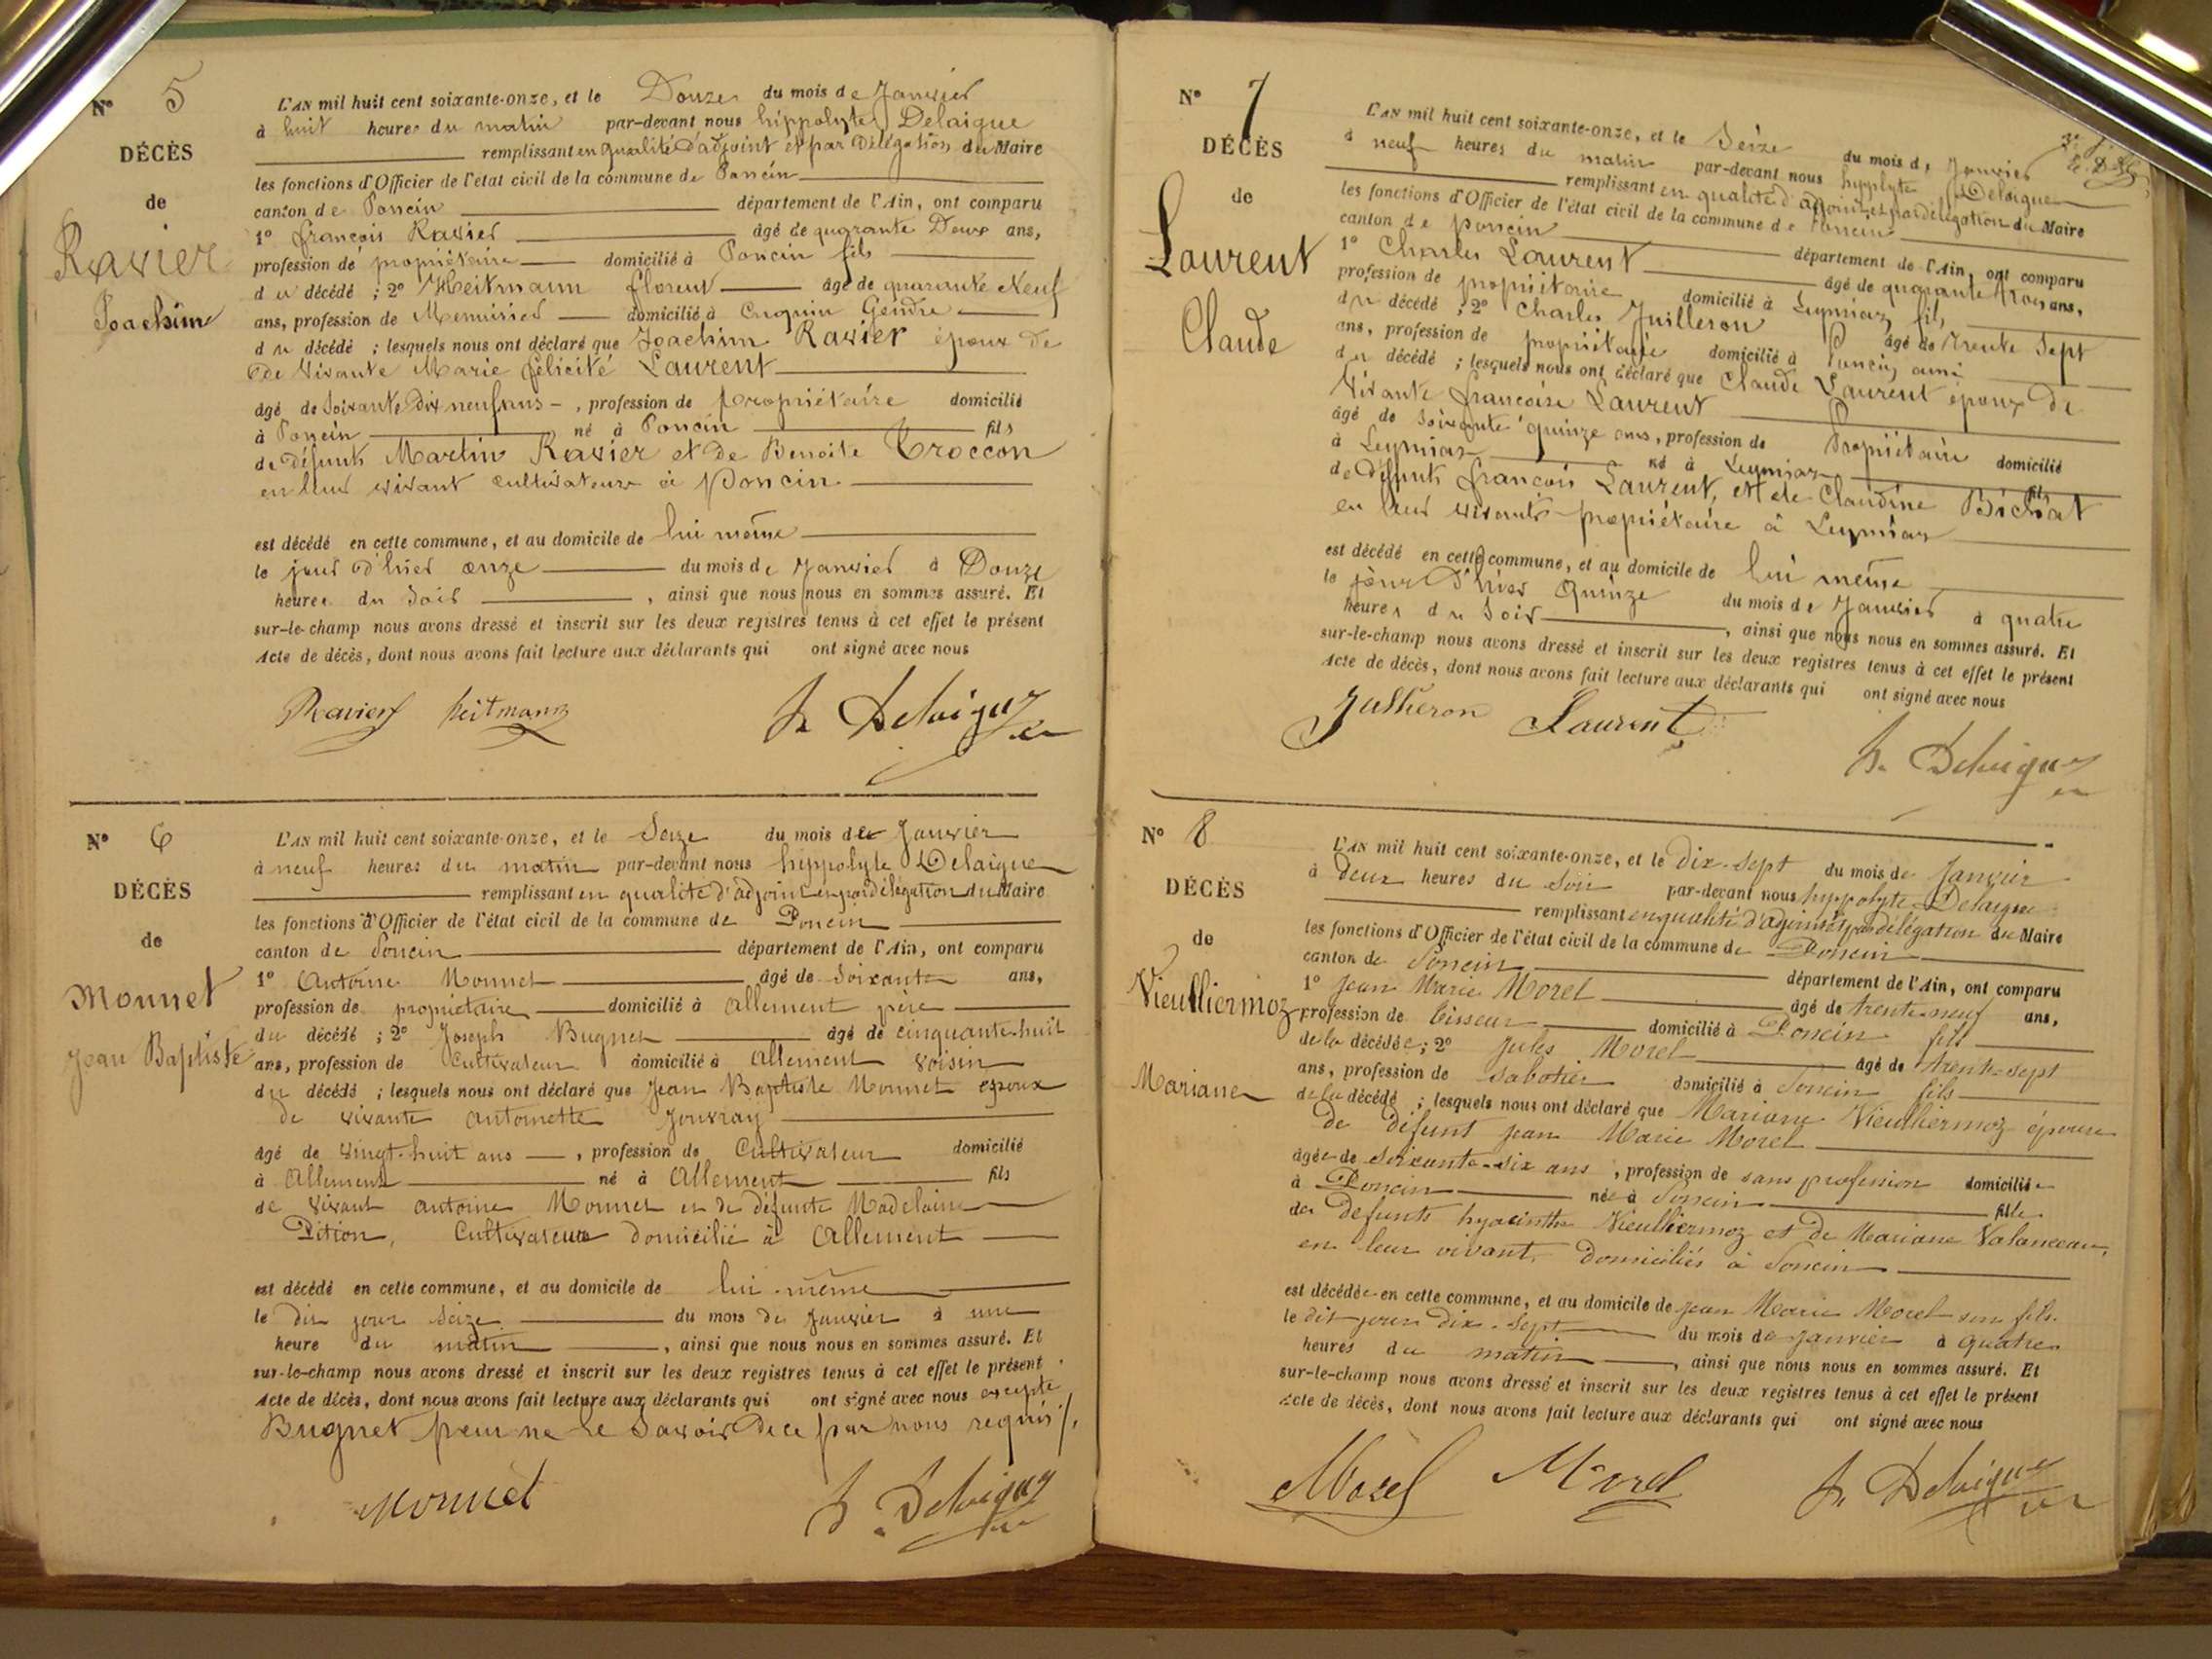 N° 5
DÉCÈS
de
Ravier
Joachim
L'AN mil huit cent soixante-onze, et le Douze du mois de Janvier
à huit heures du matin par-devant nous hippolyte Delaigue
remplissant en qualité d'adjoint et par Délégation du Maire
les fonctions d'Officier de l'état civil de la commune de Poncin
canton de Poncin département de l'Ain, ont comparu
1° françois Ravier âgé de quarante Deux ans,
profession de propriétaire domicilié à Poncin fils
du décédé ; 2° Heitmann florent âgé de quarante Neuf
ans, profession de Menuisier domicilié à Gendre
du décédé ; lesquels nous ont déclaré que Joachim Ravier époux de
de vivante Marie félicité Laurent
âgé de Soixante Dix neuf ans, profession de propriétaire domicilié
à Poncin né à Poncin fils
de défunts Martin Ravier et de Benoite Troccon
en leur vivant cultivateurs à Poncin
est décédé en cette commune, et au domicile de lui même
le jour d'hier onze du mois de Janvier à Douze
heures du Soir, ainsi que nous nous en sommes assuré. Et
sur-le-champ nous avons dressé et inscrit sur les deux registres tenus à cet effet le présent
Acte de décès, dont nous avons fait lecture aux déclarants qui ont signé avec nous
Ravier heitmann h. Delaigue
N° 6
DÉCÈS
de
Monnet
Jean Baptiste
L'AN mil huit cent soixante-onze, et le Seize du mois de Janvier
à neuf heures du matin par-devant nous hyppolyte Delaigue
remplissant en qualité d'adjoint et par délégation du Maire
les fonctions d'Officier de l'état civil de la commune de Poncin
canton de Poncin département de l'Ain, ont comparu
1° Antoine Monnet âgé de Soixante ans,
profession de propriétaire domicilié à Allement père
du décédé ; 2° Joseph Bugnet âgé de cinquante-huit
ans, profession de Cultivateur domicilié à Allement voisin
du décédé ; lesquels nous ont déclaré que Jean Baptiste Monnet époux
de vivante Antoinette Jouvray
âgé de vingt-huit ans, profession de Cultivateur domicilié
à Allement né à Allement fils
de vivant Antoine Monnet et de défunte Madelaine
Pition, Cultivateurs domicilié à Allement
est décédé en cette commune, et au domicile de lui-même
le dit jour seize du mois de Janvier à une
heure du matin, ainsi que nous nous en sommes assuré. Et
sur-le-champ nous avons dressé et inscrit sur les deux registres tenus à cet effet le présent
Acte de décès, dont nous avons fait lecture aux déclarants qui ont signé avec nous excepté
Bugnet pour ne le Savoir de ce par nous requis /.
Monnet h. Delaigue
N° 7
DÉCÈS
de
Laurent
Claude
L'AN mil huit cent soixante-onze, et le Seize du mois de Janvier
à neuf heures du matin par-devant nous hyppolyte Delaigue
remplissant en qualité d'adjoint et par délégation du Maire
les fonctions d'Officier de l'état civil de la commune de Poncin
canton de Poncin département de l'Ain, ont comparu
1° Charles Laurent âgé de quarante trois ans,
profession de propriétaire domicilié à Leymiaz fils
du décédé ; 2° Charles Juilleron âgé de Trente Sept
ans, profession de propriétaire domicilié à Poncin ami
du décédé ; lesquels nous ont déclaré que Claude Laurent époux de
Vivante françoise Laurent
âgé de soixante quinze ans, profession de Propriétaire domicilié
à Leymiaz né à Leymiaz fils
de défunts françois Laurent, et de Claudine Bichat
en leur vivants propriétaire à Leymiaz
est décédé en cette commune, et au domicile de lui même
le jour D'hier Quinze du mois de Janvier à quatre
heures du Soir, ainsi que nous nous en sommes assuré. Et
sur-le-champ nous avons dressé et inscrit sur les deux registres tenus à cet effet le présent
Acte de décès, dont nous avons fait lecture aux déclarants qui ont signé avec nous
Juilleron Laurent
h. Delaigue
N° 8
DÉCÈS
de
Vieulliermoz
Mariane
L'AN mil huit cent soixante-onze, et le dix-sept du mois de Janvier
à deux heures du Soir par-devant nous hyppolyte Delaigue
remplissant en qualité d'adjoint et par délégation du Maire
les fonctions d'Officier de l'état civil de la commune de Poncin
canton de Poncin département de l'Ain, ont comparu
1° Jean Marie Morel âgé de trente-neuf ans,
profession de tisseur domicilié à Poncin fils
de la décédée ; 2° Jules Morel âgé de trente-sept
ans, profession de sabotier domicilié à Poncin fils
de la décédé ; lesquels nous ont déclaré que Mariane Vieulliermoz épouse
de défunt Jean Marie Morel
âgée de soixante-six ans, profession de sans profession domiciliée
à Poncin née à Poncin fille
des défunts hyacinthe Vieulliermoz et de Mariane Valanceau,
en leur vivant, domiciliés à Poncin
est décédée en cette commune, et au domicile de Jean Marie Morel son fils
le dit jour dix-sept du mois de Janvier à quatre
heures du matin, ainsi que nous nous en sommes assuré. Et
sur-le-champ nous avons dressé et inscrit sur les deux registres tenus à cet effet le présent
Acte de décès, dont nous avons fait lecture aux déclarants qui ont signé avec nous
Morel Morel h. Delaigue